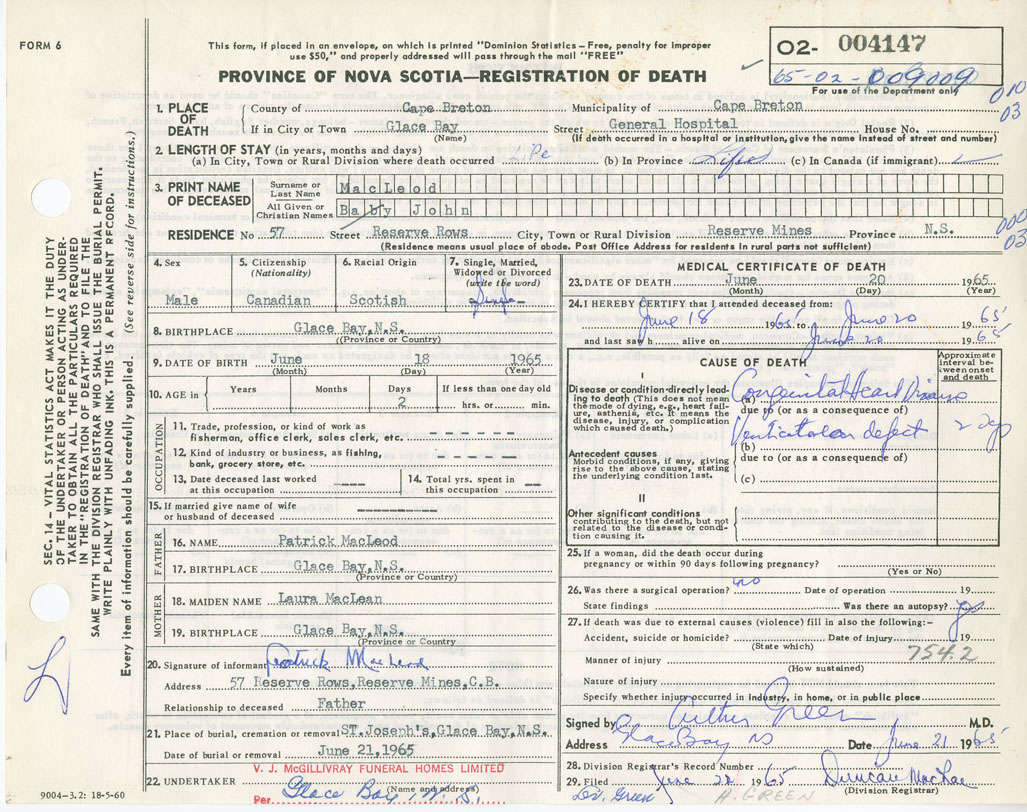 FORM 6
This form, if placed in an envelope, on which is printed "Dominion Statistics – Free, penalty for improper
use $50," and properly addressed will pass through the mail "FREE"
PROVINCE OF NOVA SCOTIA—REGISTRATION OF DEATH
02- 004147
65-02-009009
For use of the Department only
010
03
1. PLACE OF DEATH
County of Cape Breton Municipality of Cape Breton
If in City or Town Glace Bay Street General Hospital House No.
(Name) (If death occurred in a hospital or institution, give the name instead of street and number)
2. LENGTH OF STAY (in years, months and days)
(a) In City, Town or Rural Division where death occurred Life (b) In Province Life (c) In Canada (if immigrant) —
3. PRINT NAME OF DECEASED
Surname or Last Name MacLeod
All Given or Christian Names Baby John
RESIDENCE No 57 Street Reserve Rows City, Town or Rural Division Reserve Mines Province N.S.
(Residence means usual place of abode. Post Office Address for residents in rural parts not sufficient)
000
03
4. Sex Male
5. Citizenship (Nationality) Canadian
6. Racial Origin Scotish
7. Single, Married, Widowed or Divorced (write the word) Single
8. BIRTHPLACE Glace Bay, N.S.
((Province or Country)
9. DATE OF BIRTH June 18 1965
(Month) (Day) (Year)
10. AGE in Years Months Days 2 If less than one day old hrs. or min.
OCCUPATION
11. Trade, profession, or kind of work as
fisherman, office clerk, sales clerk, etc. - - - - - -
12. Kind of industry or business, as fishing,
bank, grocery store, etc. - - - - - -
13. Date deceased last worked
at this occupation ----
14. Total yrs. spent in
this occupation --
15. If married give name of wife
or husband of deceased ----------
FATHER
16. NAME Patrick MacLeod
17. BIRTHPLACE Glace Bay, N.S.
(Province or Country)
MOTHER
18. MAIDEN NAME Laura MacLean
19. BIRTHPLACE Glace Bay, N.S.
(Province or Country
20. Signature of informant Patrick MacLeod
Address 57 Reserve Rows, Reserve Mines, C.B.
Relationship to deceased Father
21. Place of burial, cremation or removal ST. Joseph's, Glace Bay, N.S.
Date of burial or removal June 21, 1965
V. J. McGILLIVRAY FUNERAL HOMES LIMITED
22. UNDERTAKER
(Name and address)
Per Glace Bay, N.S.
9004–3.2: 18-5-60
MEDICAL CERTIFICATE OF DEATH
23. DATE OF DEATH June 20 1965
(Month) (Day) (Year)
24. I HEREBY CERTIFY that I attended deceased from:
June 18 1965 to June 20 1965
and last saw h alive on June 20 1965
CAUSE OF DEATH
Approximate interval between onset and death
I
Disease or condition directly leading to death (This does not mean the mode of dying, e.g., heart failure, asthenia, etc. It means the disease, injury, or complication which caused death.)
(a) Congenital Heart Disease
due to (or as a consequence of)
(b) Ventricular defect 2 days
Antecedent causes
Morbid conditions, if any, giving rise to the above cause, stating the underlying condition last.
due to (or as a consequence of)
(c)
II
Other significant conditions
contributing to the death, but not related to the disease or condition causing it.
25. If a woman, did the death occur during
pregnancy or within 90 days following pregnancy?
(Yes or No)
26. Was there a surgical operation? no Date of operation 19
State findings Was there an autopsy? yes
27. If death was due to external causes (violence) fill in also the following:–
Accident, suicide or homicide? Date of injury 19
(State which)
754.2
Manner of injury
(How sustained)
Nature of injury
Specify whether injury occurred in industry, in home, or in public place
Signed by Arthur Green M.D.
Address Glace Bay NS Date June 21 1965
28. Division Registrar's Record Number
29. Filed June 22 1965 Duncan MacRae
(Division Registrar)
Dr. Green
H. GREEN
SEC. 14 – VITAL STATISTICS ACT MAKES IT THE DUTY
OF THE UNDERTAKER OR PERSON ACTING AS UNDER-
TAKER TO OBTAIN ALL THE PARTICULARS REQUIRED
IN THE "REGISTRATION OF DEATH" AND TO FILE THE
SAME WITH THE DIVISION REGISTRAR WHO SHALL ISSUE THE BURIAL PERMIT.
WRITE PLAINLY WITH UNFADING INK. THIS IS A PERMANENT RECORD.
Every item of information should be carefully supplied. (See reverse side for instructions.)